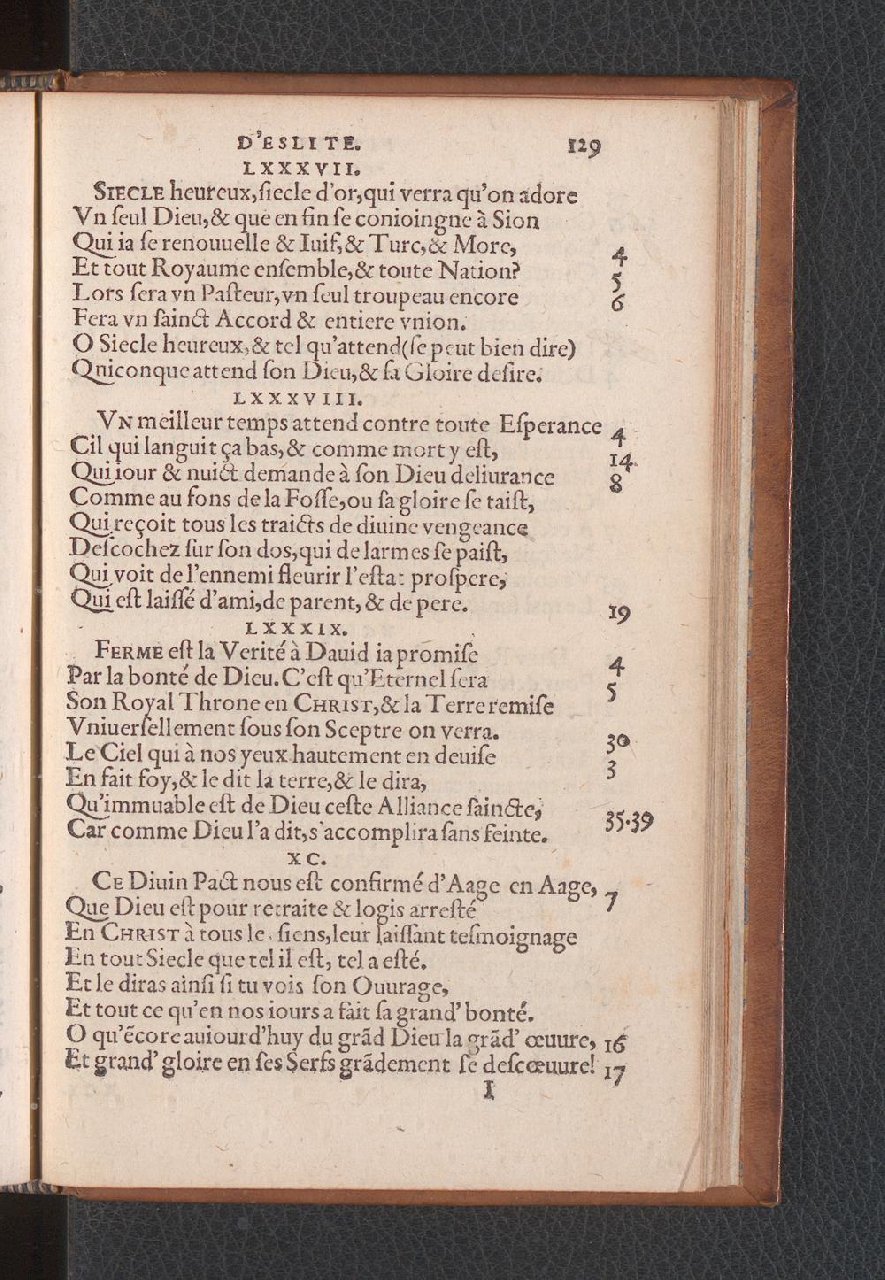 D'ESLITE. 129
LXXXVII.
SIECLE heureux,ſiecle d'or,qui verra qu'on adore
Vn ſeul Dieu,& que en fin ſe conioingne à Sion
Qui ia ſe renouuelle & Iuif,& Turc,& More, 4
Et tout Royaume enſemble,& toute Nation? 5
Lors ſera vn Paſteur,vn ſeul troupeau encore 6
Fera vn ſainct Accord & entiere vnion.
O Siecle heureux,& tel qu'attend(ſe peut bien dire)
Quiconque attend ſon Dieu,& ſa Gloire deſire.
LXXXVIII.
VN meilleur temps attend contre toute Eſperance 4
Cil qui languit ça bas,& comme mort y eſt, 14.
Qui iour & nuict demande à ſon Dieu deliurance 8
Comme au fons de la Foſſe,ou ſa gloire ſe taiſt,
Qui reçoit tous les traicts de diuine vengeance
Deſcochez ſur ſon dos,qui de larmes ſe paiſt,
Qui voit de l'ennemi fleurir l'eſtat proſpere,
Qui eſt laiſſé d'ami,de parent, & de pere. 19
LXXXIX.
FERME eſt la Verité à Dauid ia promiſe 4
Par la bonté de Dieu. C'eſt qu'Eternel ſera 5
Son Royal Throne en CHRIST,& la Terre remiſe
Vniuerſellement ſous ſon Sceptre on verra. 30
Le Ciel qui à nos yeux hautement en deuiſe 3
En fait foy,& le dit la terre,& le dira,
Qu'immuable eſt de Dieu ceſte Alliance ſaincte, 35.39
Car comme Dieu l'a dit,s'accomplira ſans feinte.
XC.
CE Diuin Pact nous eſt confirmé d'Aage en Aage, 7
Que Dieu eſt pour retraite & logis arreſté
En CHRIST à tous les ſiens,leur laiſſant teſmoignage
En tout Siecle que tel il eſt, tel a eſté.
Et le diras ainſi ſi tu vois ſon Ouurage,
Et tout ce qu'en nos iours a fait ſa grand' bonté.
O qu'ẽcore auiourd'huy du grãd Dieu la grãd' œuure, 16
Et grand' gloire en ſes Serfs grãdement ſe deſcœuure! 17
I